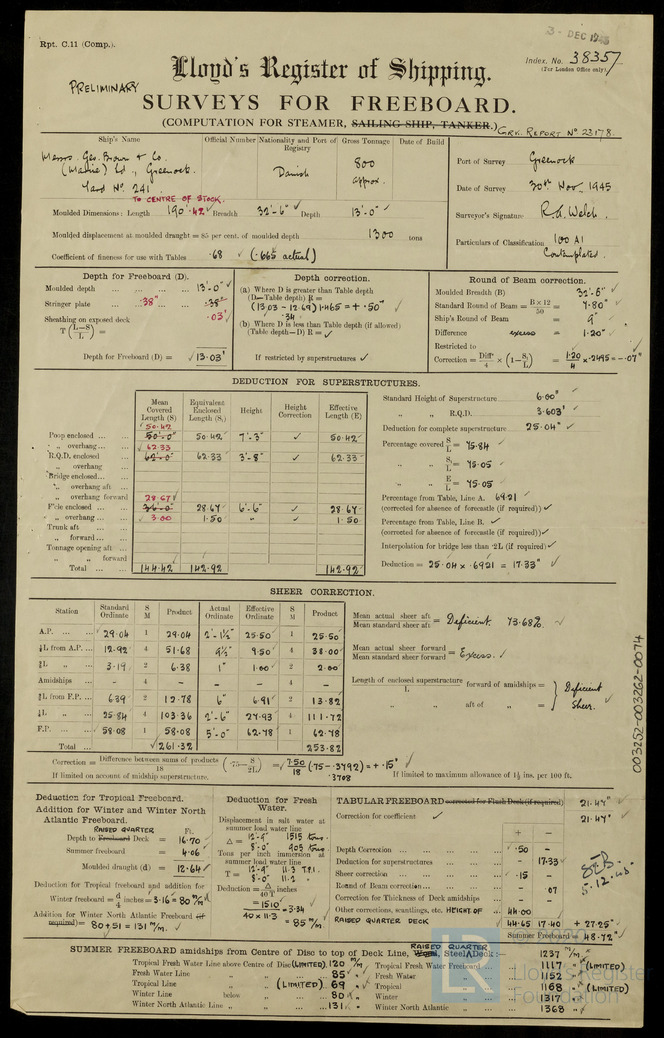 Rpt. C.11 (Comp.).
3 - DEC 1945
Index. No. 38357
(For London Office only)
Lloyd's Register of Shipping.
PRELIMINARY
SURVEYS FOR FREEBOARD.
(COMPUTATION FOR STEAMER, SAILING SHIP, TANKER.)
GRK. REPORT No 23178.
Ship's Name
Official Number
Nationality and Port of Registry
Gross Tonnage
Date of Build
Messrs. Geo. Brown & Co.
(Marine) Ld, Greenock.
Yard No. 241
Danish
800 approx.
Port of Survey Greenock
Date of Survey 30th Nov. 1945
Surveyor's Signature
Particulars of Classification 100 A1
Contemplated.
TO CENTRE OF STOCK.
Moulded Dimensions: Length 190'.42 Breadth 32'-6" Depth 13'-0"
Moulded displacement at moulded draught = 85 per cent. of moulded depth 1300 tons
Coefficient of fineness for use with Tables .68 (.665 actual)
Depth for Freeboard (D).
Moulded depth ... 13'-0"
Stringer plate ... .38"
Sheathing on exposed deck .03'
T (L-S/L) =
Depth for Freeboard (D) = 13.03'
Depth correction.
(a) Where D is greater than Table depth
(D—Table depth) R =
(13.03 - 12.69) 1.465 = + .50"
.34
(b) Where D is less than Table depth (if allowed)
(Table depth—D) R =
If restricted by superstructures
Round of Beam correction.
Moulded Breadth (B) 32'-6"
Standard Round of Beam = B×12/50 = 7.80"
Ship's Round of Beam = 9"
Difference excess = 1.20"
Restricted to
Correction = Diff'/4 × (1 - S₁/L) = 1.20/4 × .2495 = -.07"
DEDUCTION FOR SUPERSTRUCTURES.
Mean Covered Length (S)
Equivalent Enclosed Length (S₁)
Height
Height Correction
Effective Length (E)
Poop enclosed 50.42 50'-0" 50.42 7'-3" 50.42
" overhang
R.Q.D. enclosed 62.33 62'-0" 62.33 3'-8" 62.33
" overhang
Bridge enclosed
" overhang aft
" overhang forward
F'cle enclosed 28.67 28.67 6'-6" 28.67
" overhang 3.00 1.50 " 1.50
Trunk aft
" forward
Tonnage opening aft
" " forward
Total 144.42 142.92 142.92
Standard Height of Superstructure 6.00"
" " R.Q.D. 3.603'
Deduction for complete superstructure 25.04"
Percentage covered S/L = 75.84
" " S₁/L = 75.05
" " E/L = 75.05
Percentage from Table, Line A. 69.21
(corrected for absence of forecastle (if required))
Percentage from Table, Line B.
(corrected for absence of forecastle (if required))
Interpolation for bridge less than .2L (if required)
Deduction = 25.04 × .6921 = 17.33"
SHEER CORRECTION.
Station
Standard Ordinate
S M
Product
Actual Ordinate
Effective Ordinate
S M
Product
A.P. 29.04 1 29.04 2'-1½" 25.50 1 25.50
⅙L from A.P. 12.92 4 51.68 9½" 9.50 4 38.00
⅓L " 3.19 2 6.38 1" 1.00 2 2.00
Amidships - 4 - - - 4 -
⅓L from F.P. 6.39 2 12.78 6" 6.91 2 13.82
⅙L " 25.84 4 103.36 2'-6" 27.93 4 111.72
F.P. 58.08 1 58.08 5'-0" 62.78 1 62.78
Total 261.32 253.82
Mean actual sheer aft / Mean standard sheer aft = Deficient 73.68%
Mean actual sheer forward / Mean standard sheer forward = Excess.
Length of enclosed superstructure / L forward of amidships =
" " aft of " =
Deficient Sheer.
Correction = Difference between sums of products / 18 (.75 - S/2L) = 7.50/18 (.75 - .3792) = + .15"
.3708
If limited on account of midship superstructure.
If limited to maximum allowance of 1½ ins. per 100 ft.
003252-003262-0074
Deduction for Tropical Freeboard.
Addition for Winter and Winter North Atlantic Freeboard.
Ft.
RAISED QUARTER
Depth to Freeboard Deck = 16.70
Summer freeboard = 4.06
Moulded draught (d) = 12.64
Deduction for Tropical freeboard and addition for
Winter freeboard = d/4 inches = 3.16 = 80 m/m
Addition for Winter North Atlantic Freeboard (if required) = 80 + 51 = 131 m/m.
Deduction for Fresh Water.
Displacement in salt water at summer load water line
Δ = 12'-9" 1515 tons.
8'-0" 903 tons
Tons per inch immersion at summer load water line
T = 12'-9" 11.3 T.P.I.
8'-0" 11.2 "
Deduction = Δ/40 T inches
= 1510 / 40 × 11.3 = 3.34
= 85 m/m
TABULAR FREEBOARD corrected for Flush Deck (if required) 21.47"
Correction for coefficient 21.47"
+ -
Depth Correction .50 -
Deduction for superstructures - 17.33
Sheer correction .15 -
Round of Beam correction - .07
Correction for Thickness of Deck amidships - -
Other corrections, scantlings, etc. HEIGHT OF RAISED QUARTER DECK 44.00 -
44.65 17.40 + 27.25"
Summer Freeboard = 48.72"
5.12.45.
RAISED QUARTER
SUMMER FREEBOARD amidships from Centre of Disc to top of Deck Line, Wood, Steel Deck:— 1237 m/m
Tropical Fresh Water Line above Centre of Disc (LIMITED) 120 m/m
Fresh Water Line " " 85 "
Tropical Line " " (LIMITED) 69 "
Winter Line below " " 80 "
Winter North Atlantic Line " " 131 "
Tropical Fresh Water Freeboard 1117 " (LIMITED)
Fresh Water " 1152 "
Tropical " 1168 " (LIMITED)
Winter " 1317 "
Winter North Atlantic " 1368 "
LR
Lloyd's Register
Foundation